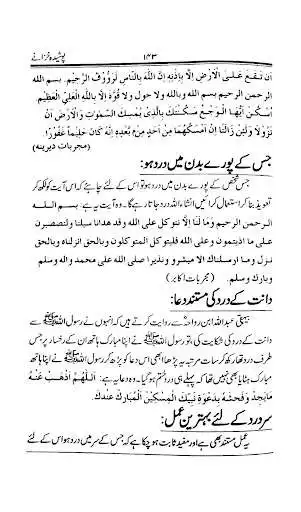 پوشیدہ خزانے ۱۴۳
اَن تَقَعَ عَلَی الْاَرْضِ اِلَّا بِاِذْنِهٖ اِنَّ اللّٰهَ بِالنَّاسِ لَرَؤُوفُ الرَّحِیْم. بسم الله
الرحمن الرحیم بسم الله وبالله ولا حول ولا قُوَّةَ اِلَّا بِاللّٰهِ الْعَلِیِّ الْعَظِیْمِ
اُسْکُنْ اَیُّهَا الْوَجَعُ سَکَّنْتُکَ بِالَّذِی یُمْسِکُ السَّمٰوٰتِ وَالْاَرْضَ اَنْ
تَزُوْلَا وَلَئِنْ زَالَتَا اِنْ اَمْسَکَهُمَا مِنْ اَحَدٍ مِنْ بَعْدِهٖ اِنَّهٗ کَانَ حَلِیْمًا غَفُوْرًا
(مجربات دیربی)
جس کے پورے بدن میں درد ہو:
جس شخص کے پورے بدن میں درد ہو تو اس کے لئے چاہئے کہ اس آیت کو لکھ کر
تعویذ بنا کر استعمال کرائیں انشاء اللہ درد جاتا رہے گا۔ وہ آیت یہ ہے: بسم الله
الرحمن الرحیم وَمَا لَنَا اِلَّا نتوکل علی الله وقد هدانا سبلنا ولنصبرن
علی ما اذیتمون وعلی الله فلیتوکل المتوکلون وبالحق انزلناه وبالحق
نزل وما ارسلناک الا مبشرا ونذیرا صلی الله علی محمد واله وسلم
وبارک وسلم. (مجربات اکابر)
دانت کے درد کی مستند دعا:
بیہقی عبداللہ ابن رواحہؓ سے روایت کرتے ہیں کہ انہوں نے رسول اللہ ﷺ سے
دانت کے درد کی شکایت کی، تو رسول اللہ ﷺ نے اپنا مبارک ہاتھ ان کے رخسار پر جس
طرف درد تھا رکھ کر سات مرتبہ یہ پڑھا ابھی اس دعا کو پڑھ کر رسول اللہ ﷺ نے اپنا ہاتھ
مبارک ہٹایا بھی نہیں تھا کہ پہلے ہی درد دور ہو گیا۔ وہ دعا یہ ہے: اَللّٰهُمَّ اَذْهِبْ عَنْهُ
مَایَجِدُ وَفُحْشَهٗ بِدَعْوَةِ نَبِیِّکَ الْمِسْکِیْنِ الْمُبَارَکِ عِنْدَکَ.
سر درد کے لئے بہترین عمل:
یہ عمل مستند بھی ہے اور مفید ثابت ہو چکا ہے کہ جس کے سر میں درد ہو اس کے لئے